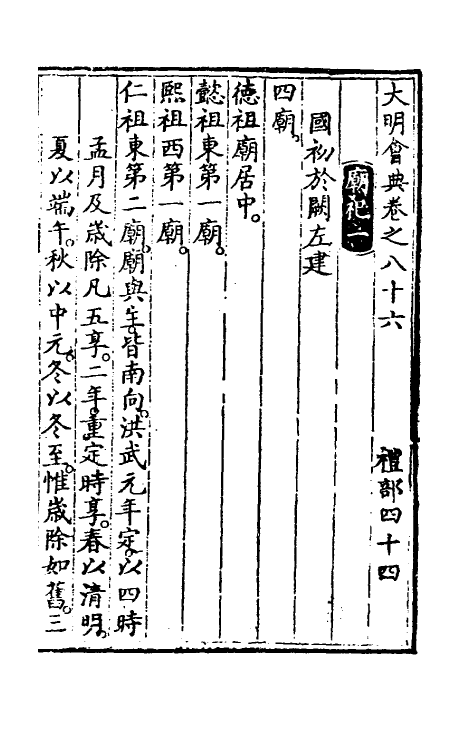 大明會典卷之八十六 禮部四十四
廟祀一
國初於闕左建
四廟。
德祖廟居中。
懿祖東第一廟。
熙祖西第一廟。
仁祖東第二廟。廟與主。皆南向。洪武元年定。以四時
孟月及歲除凡五享。二年。重定時享。春以清明。
夏以端午。秋以中元。冬以冬至。惟歲除如舊。三